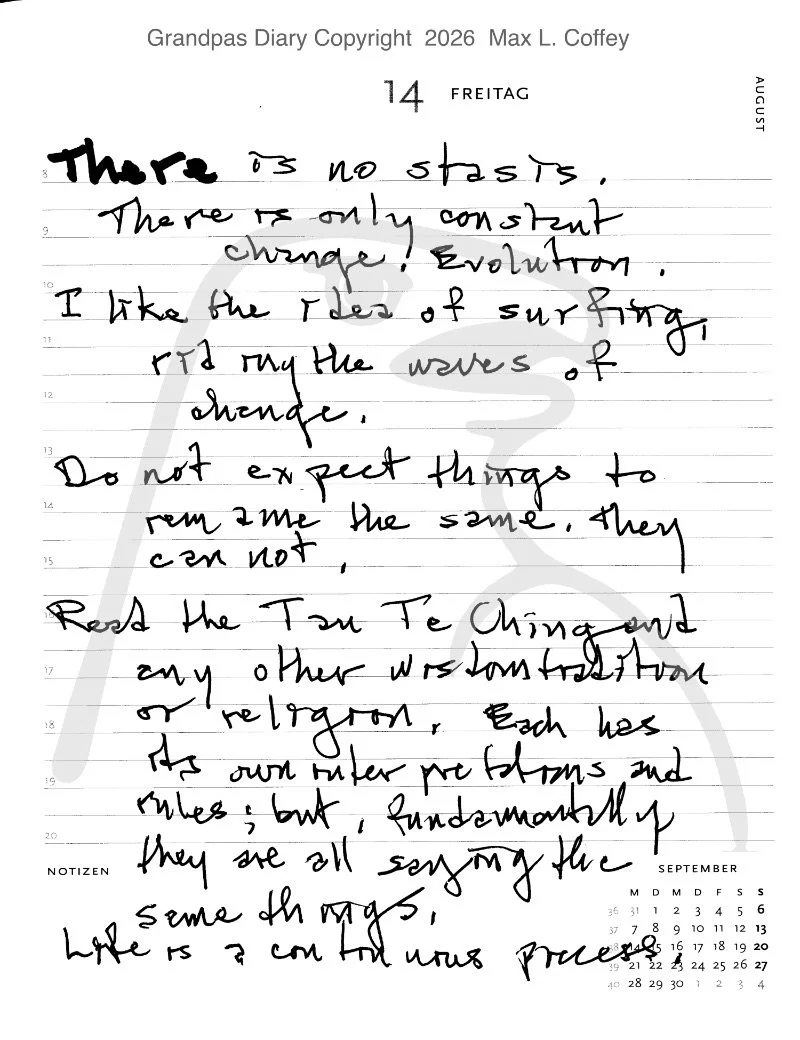 Grandpas Diary Copyright 2026 Max L. Coffey
14 FREITAG
AUGUST
8 There is no stasis.
9 There is only constant
change! Evolution.
10 I like the idea of surfing,
11 riding the waves of
12 change.
13 Do not expect things to
14 remaine the same. they
15 can not.
16 Read the Tau Te Ching and
17 any other wisdom tradition
18 or religion. Each has
its own interpretations and
19 rules; but, fundamentally
20 they are all saying the
NOTIZEN
same things.
Life is a continuous process.
SEPTEMBER
M D M D F S S
36 31 1 2 3 4 5 6
37 7 8 9 10 11 12 13
38 14 15 16 17 18 19 20
39 21 22 23 24 25 26 27
40 28 29 30 1 2 3 4